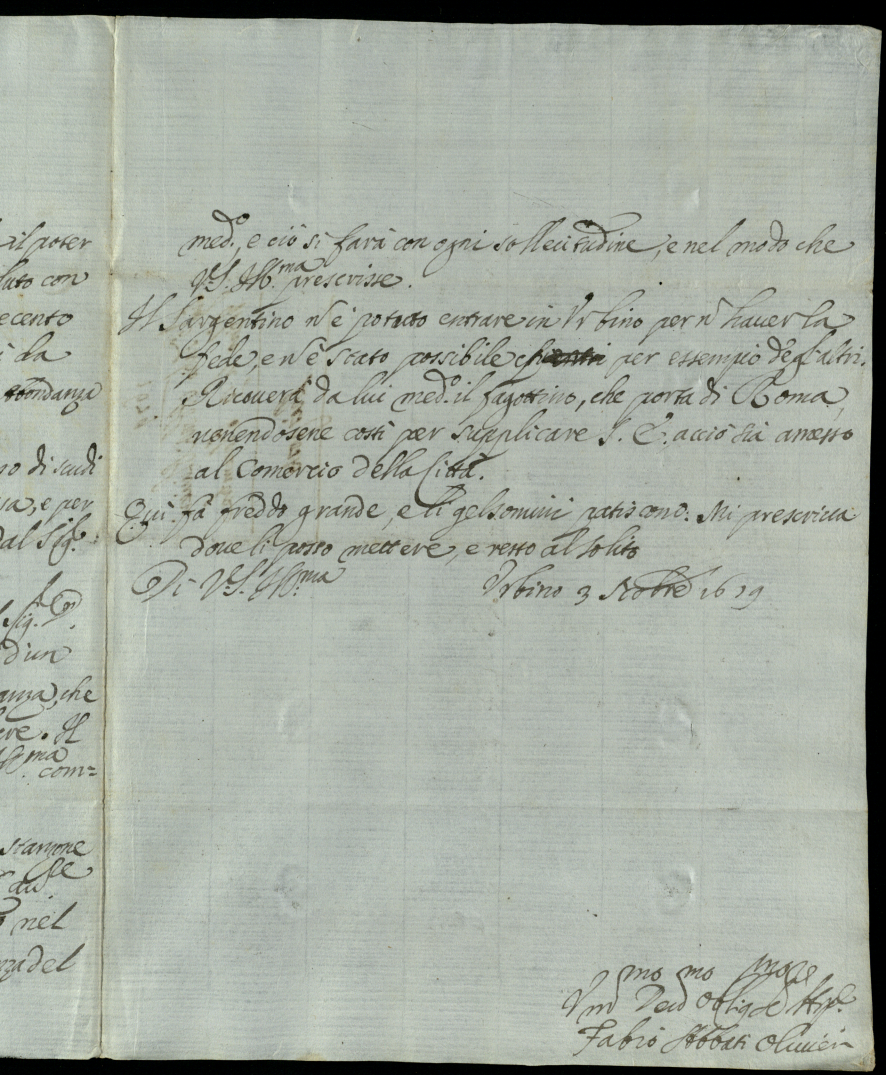 il poter
luto con
ecento
da
ondanza
no di scudi
sa, e per
dal Sig.
Sig.
d'un
anza, che
ere. Il
Ill.ma com=
stagione
nel
nza del
med.o, e ciò si farà con ogni sollecitudine, e nel modo che
V.S. Ill.ma prescrisse.
Il Sargentino nè potuto entrare in Urbino per n haver la
fede, e n è stato possibile per essempio degl'altri.
Riceverà da lui med.o il fagottino, che porta di Roma,
venendosene costì per supplicare S. E. acciò sia amesso
al Comercio della Città.
Qui fà freddo grande, e li gelsomini patiscono: Mi prescriva
dove li posso mettere, e resto al solito
Di V.S. Ill.ma Urbino 3 Nobre
Fabio Abbati Olivieri